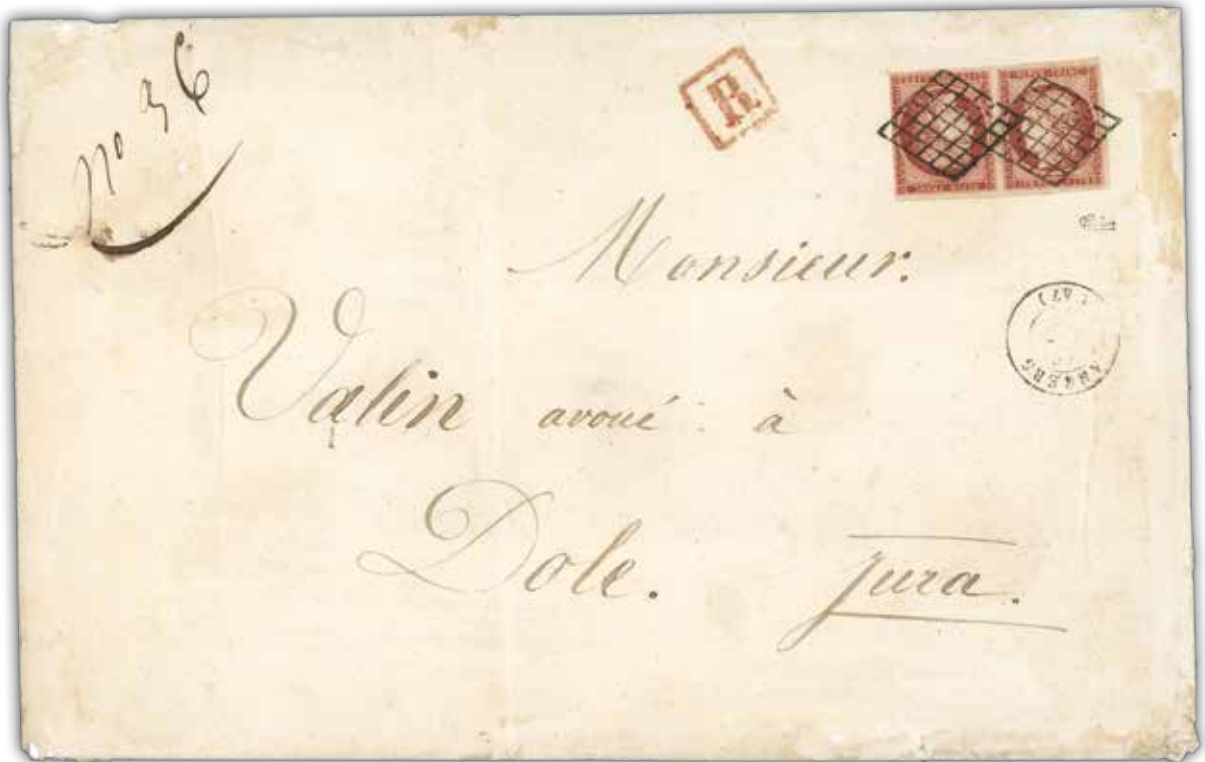 No 36
R.
Monsieur.
Valin avoué à
Dole. Jura.
ANGERS
(47)